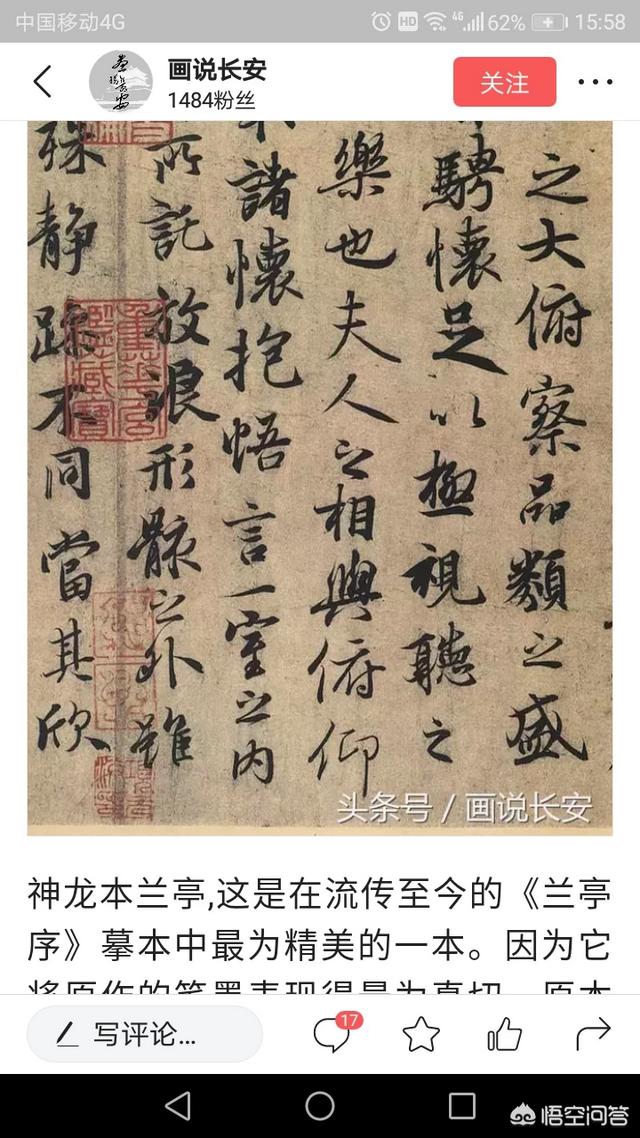 中国移动4G
HD
4G
62%
15:58
画说长安
1484粉丝
关注
之大俯察品類之盛
騁懷足以極視聽之
樂也夫人之相與俯仰
諸懷抱悟言一室之内
所託放浪形骸之外雖
殊静躁不同當其欣
头条号 / 画说长安
神龙本兰亭,这是在流传至今的《兰亭
序》摹本中最为精美的一本。因为它
将原作的笔墨表现得最为真切。原本
写评论...
17
悟空问答